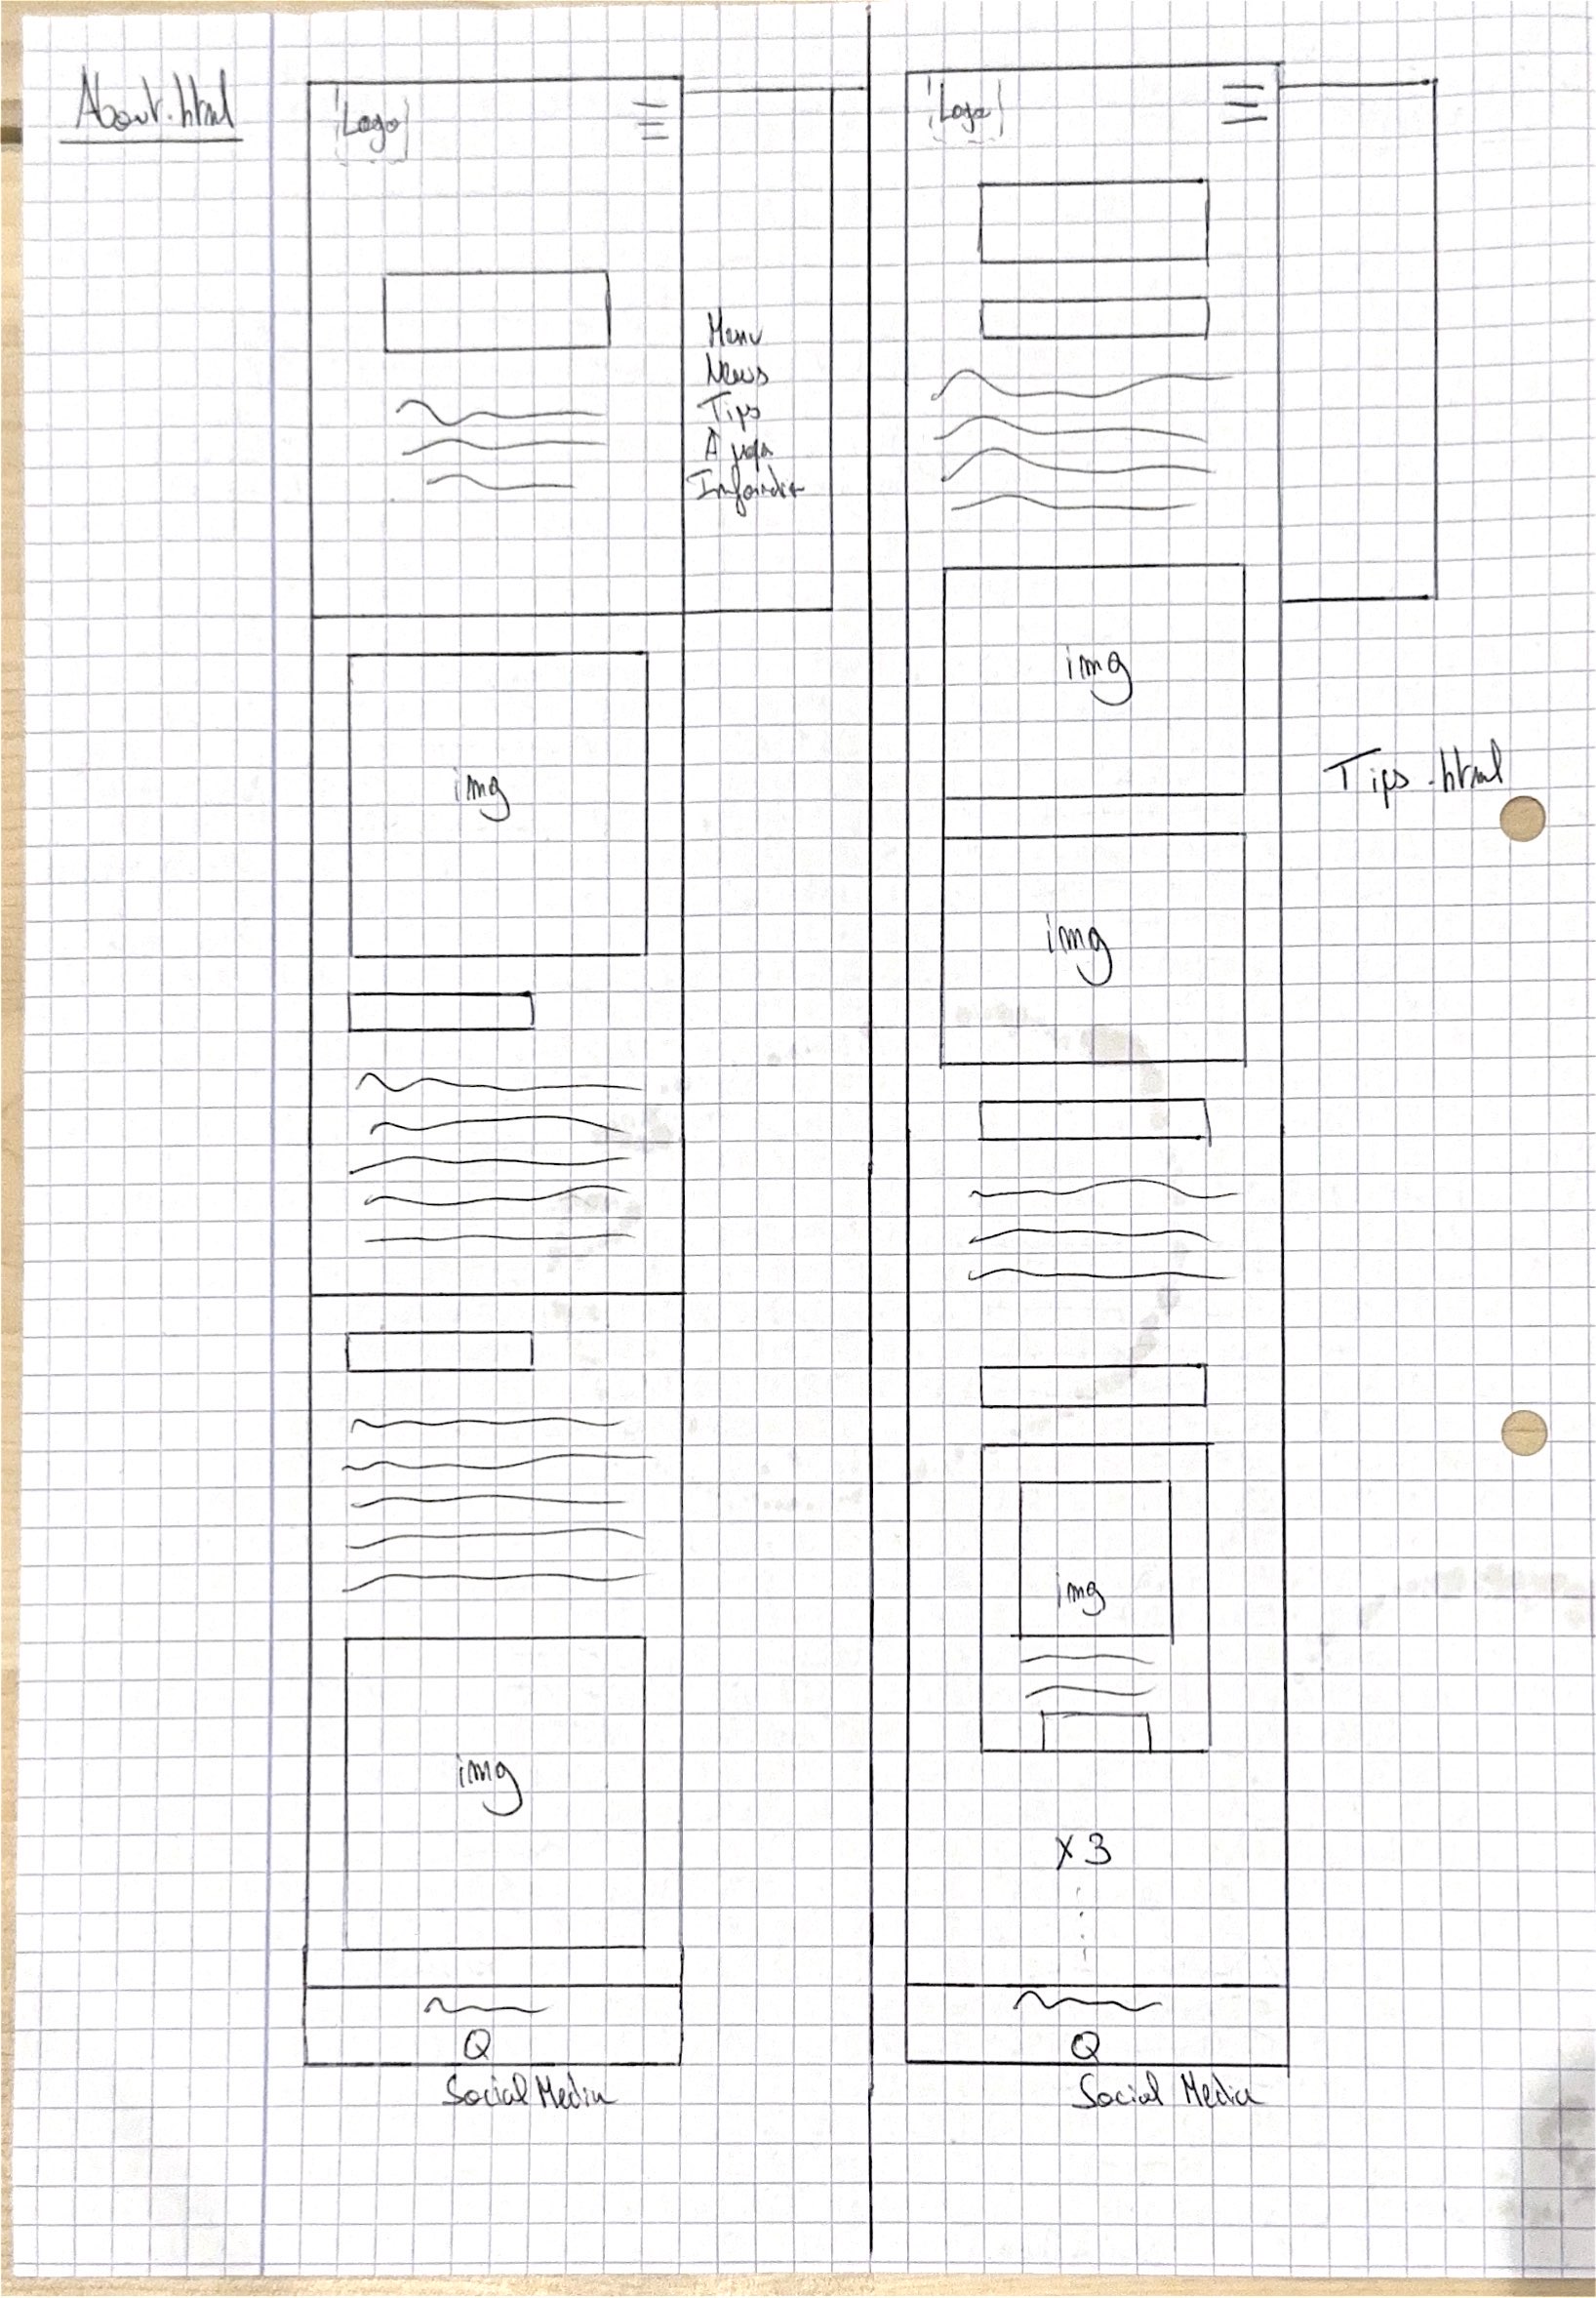 About.html
Logo
Menu
News
Tips
img
img
Q
Social Media
Logo
img
img
Tips.html
img
x3
Q
Social Media